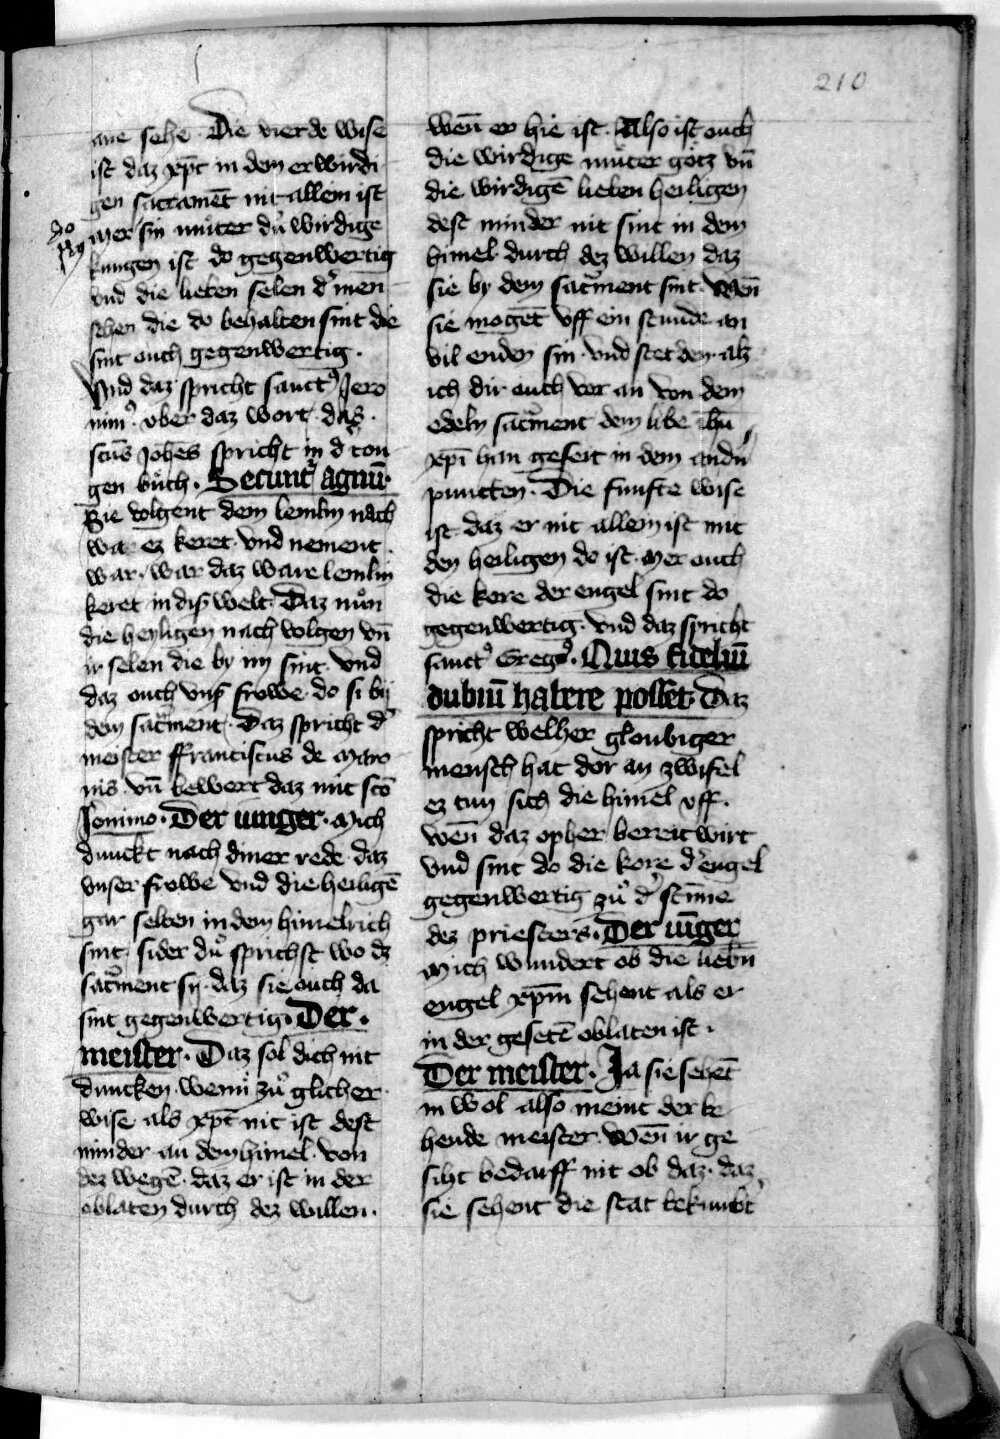 210
ane sehe. Die vierde wise
ist daz xp̄c in dem erwirdi
gen sacramēt nit allein ist
Mer sin mů̊ter dú wirdige
kungen ist do gegenwertig
vnd die lieben selen dˀ men
schen die do behalten sint die
sint ouch gegenwertig.
Vnd daz spricht sanctꝰ Jero
nimꝰ vber daz wort. daz.
sc̄us Joh̄es spricht in d̓ tou
gen bůch. Secunt᷑ agnū.
Sie volgent dem lemlin nach
wa ez keret. vnd nement.
war. war daz ware lemlin
keret in dis᷑ welt. Daz nůn
die heyligen nach volgen vn̄
ir selen die by im sint. Vnd
daz ouch vns᷑ frowe do si bij
dem sac᷑ment. Daz spricht dˀ
meister ffranciscus de Maro
nis vn̄ bewert daz mit sc̄o
Jeronimo. Der iunger. Mich
dunckt nach diner rede daz
vnser frowe vnd die heiligē
gar selten in dem himelrich
sint. sider dů sprichst wo dz
sac᷑ment sij. daz sie ouch da
sint gegenwertig. Der.
meister. Daz sol dich nit
duncken. wenn zů glicher
wise als xp̄c nit ist dest
minder an dem himel. von
dez wegē. daz er ist in der
oblaten durch dez willen.
wen̄ er hie ist. Also ist ouch
die wirdige můter gotz vn̄
die wirdigē lieben heiligen
dest minder nit sint in dem
himel durch dez willen daz
sie by dem sac᷑ment sint. Wen̄
sie mogēt vff ein stunde an
vil enden sin. vnd stetden. alz
ich dir ouch vor an von dem
edeln sac᷑ment dem libe ih̄u
xp̄i han geseit in dem andn̄
puncten. Die funfte wise
ist daz er nit allein ist mit
den heiligen do ist. Mer ouch
die kore der engel sint do
gegenwertig. vnd daz spricht
sanctꝰ Gregꝰ. Quis fideliū
dubiū habere posset. Daz
spricht welher gloubiger
mensch hat dor an zwifel
ez tun sich die himel vff.
wen̄ daz opher bereit wirt
vnd sint do die kore dˀ engel
gegenwertig zů dˀ stīme
dez priesters. Der iūger
Mich wundert ob die liebn̄
engel xp̄m sehent als er
in der gesetē oblaten ist.
Der meister. Ja sie sehēt
in wol also meint der be
hende meister. Wen̄ ir ge
siht bedarff nit ob daz. daz
sie sehent die stat bekumbt᷑